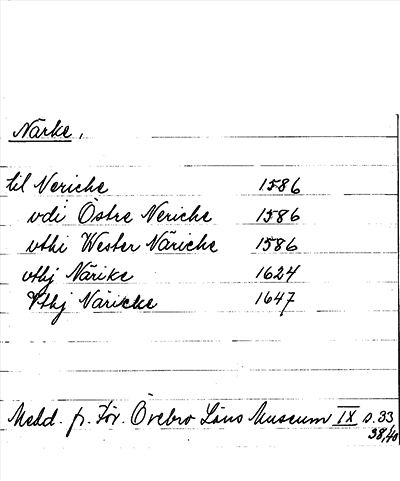 Närke,
til Neriche 1586
vdi Östre Neriche 1586
vthi Wester Näriche 1586
vthj Närike 1624
Vthj Näricke 1647
Medd. fr. För. Örebro Läns Museum IX s. 33
38,40